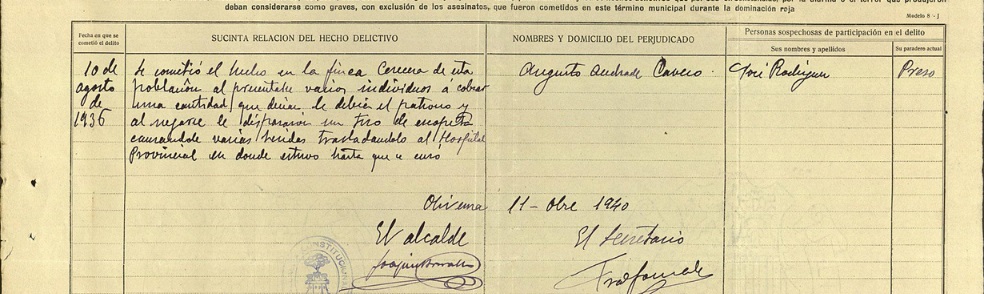 deban considerarse como graves, con exclusión de los asesinatos, que fueron cometidos en este término municipal durante la dominación roja
Modelo 8 - J
Fecha en que se cometió el delito
SUCINTA RELACION DEL HECHO DELICTIVO
NOMBRES Y DOMICILIO DEL PERJUDICADO
Personas sospechosas de participación en el delito
Sus nombres y apellidos
Su paradero actual
10 de
agosto
de
1936
Se cometió el hecho en la finca Cercera de esta
población al presentarse varios individuos a cobrar
una cantidad que decian le debia el patrono y
al negarse le dispararon un tiro de escopeta
causandole varias heridas trasladandolo al Hospital
Provincial en donde estuvo hasta que se curó
Augusto Andrade Cavero.
José Rodriguez
Preso
Olivenza 11 - Obre 1940
El alcalde
El Secretario